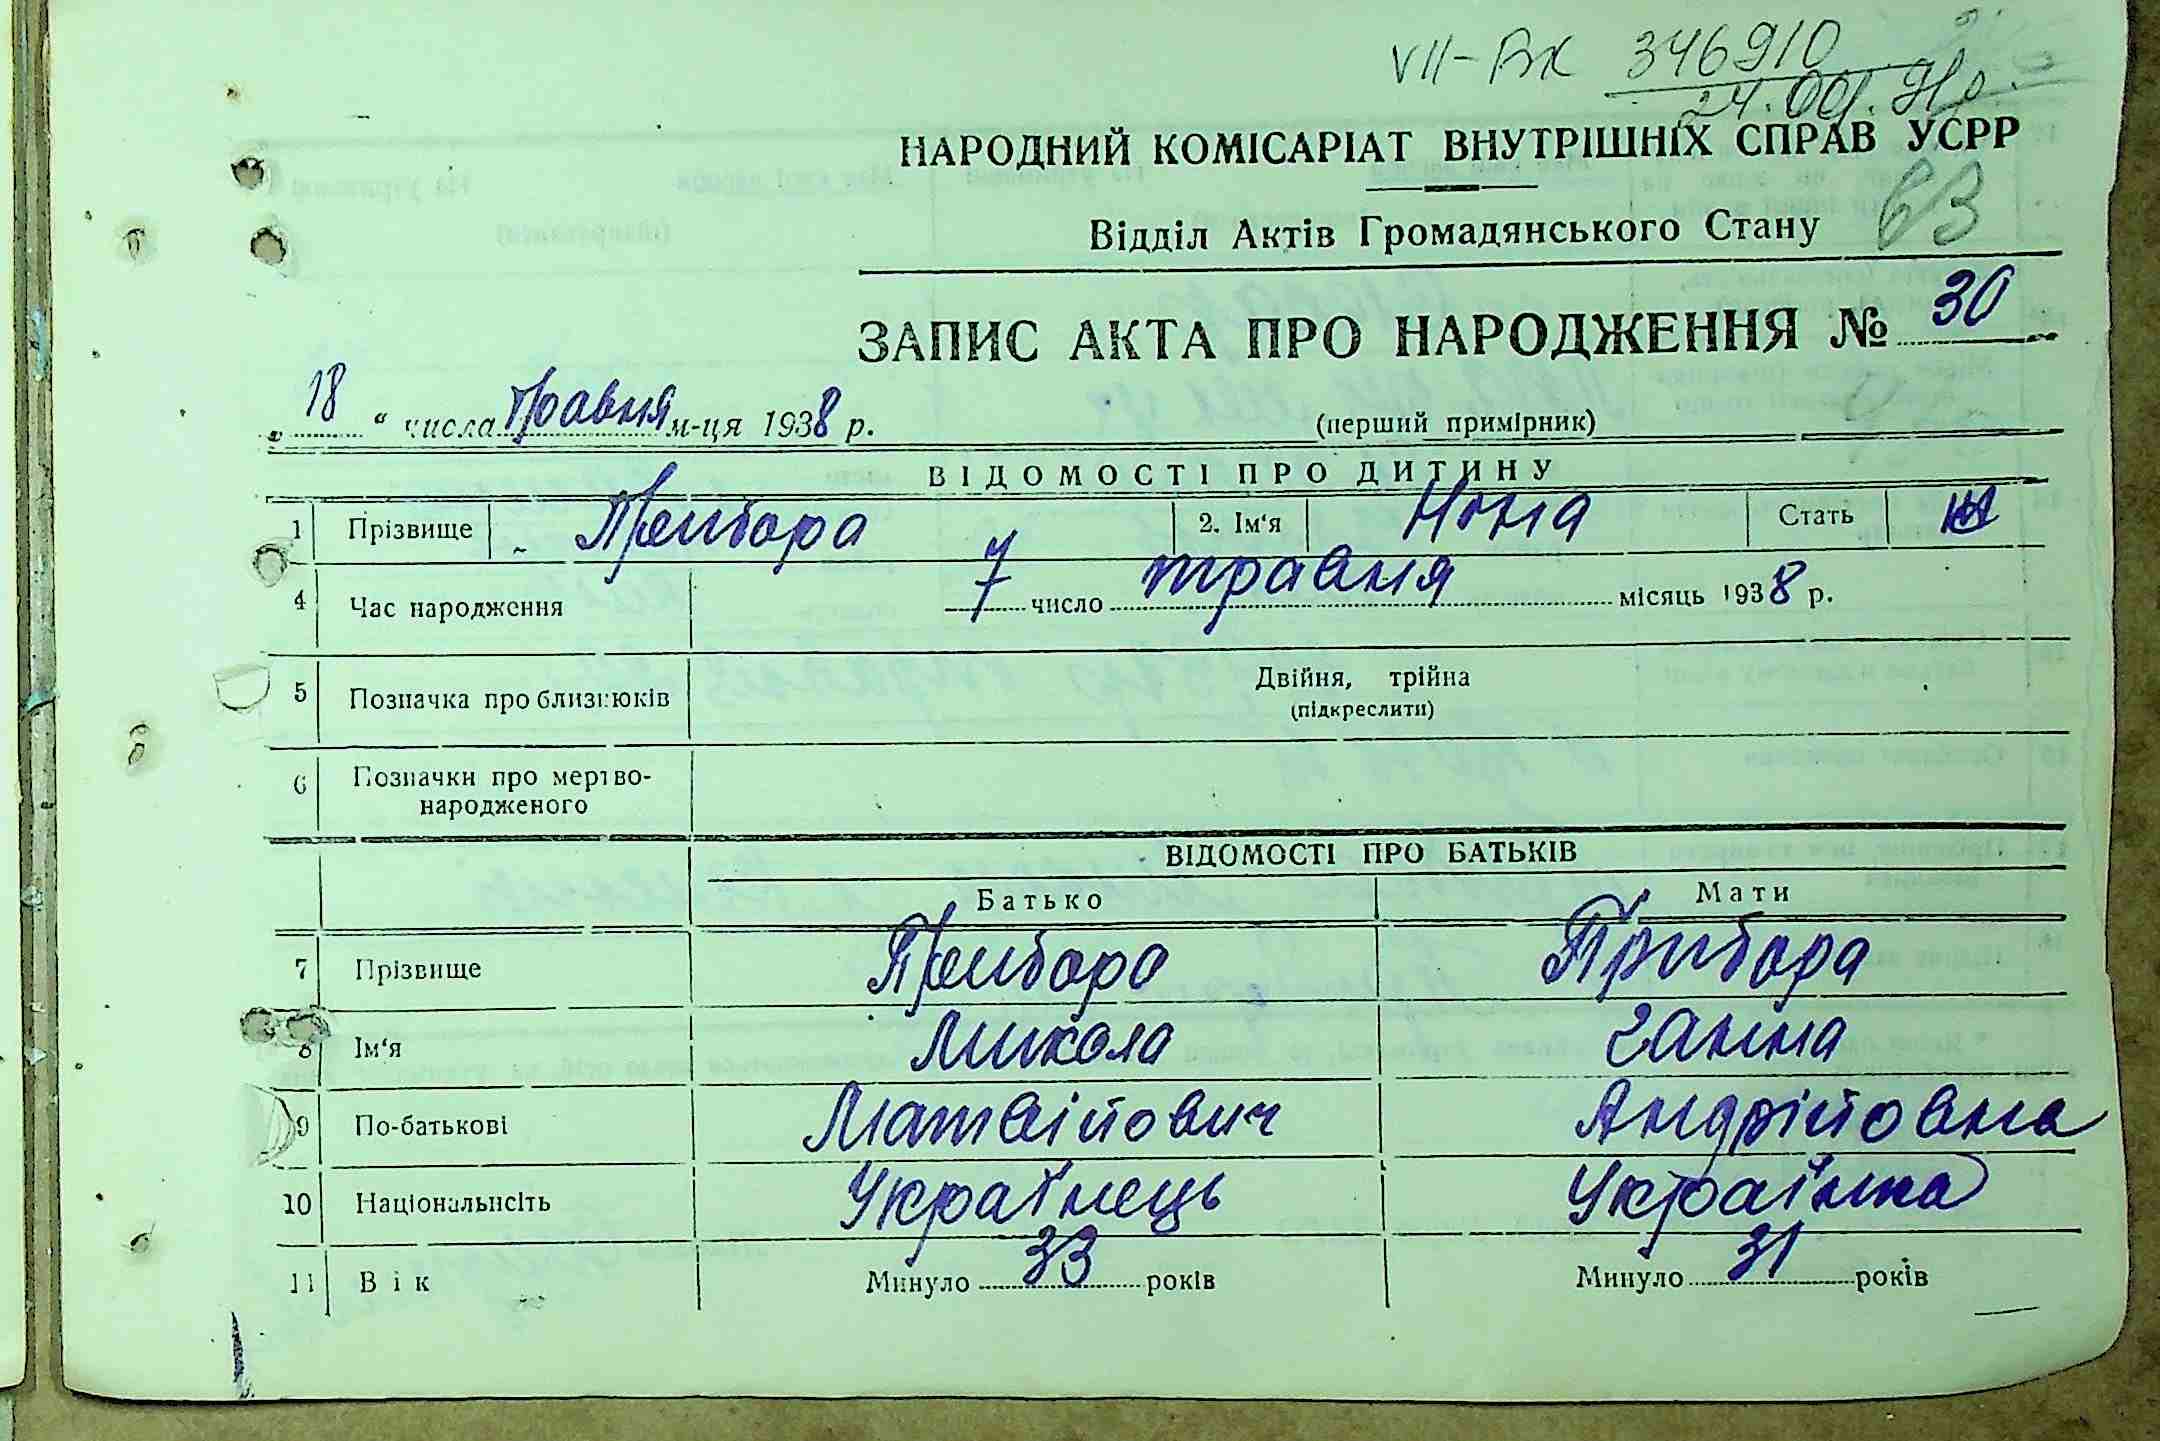 VII-ВК 346910
НАРОДНИЙ КОМІСАРІАТ ВНУТРІШНІХ СПРАВ УСРР
Відділ Актів Громадянського Стану
ЗАПИС АКТА ПРО НАРОДЖЕННЯ № 30
„ 18 “ числа травня м-ця 1938 р. (перший примірник)
ВІДОМОСТІ ПРО ДИТИНУ
1 Прізвище Прибора 2. Ім‘я Нона Стать
4 Час народження 7 число травня місяць 1938 р.
5 Позначка про близнюків Двійня, трійна
(підкреслити)
6 Позначки про мертво-
народженого
ВІДОМОСТІ ПРО БАТЬКІВ
Батько Мати
7 Прізвище Прибора Прибора
8 Ім‘я Микола Ганна
9 По-батькові Матвійович Андрійовна
10 Національнсіть Українець Українка
11 Вік Минуло 33 років Минуло 31 років